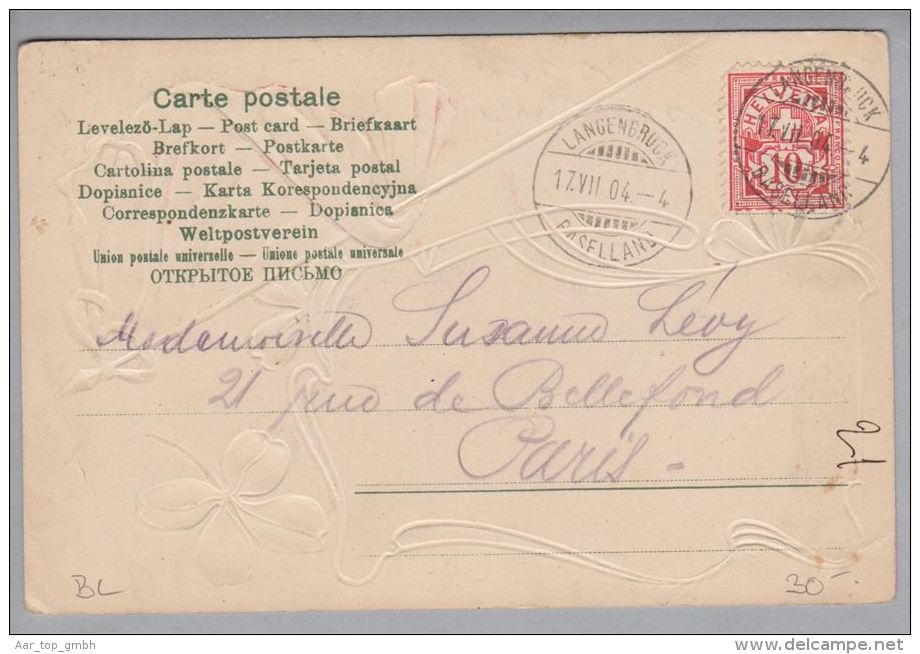 Carte postale
Levelező-Lap — Post card — Briefkaart
Brefkort — Postkarte
Cartolina postale — Tarjeta postal
Dopisnice — Karta Korespondencyjna
Correspondenzkarte — Dopisnica
Weltpostverein
Union postale universelle — Unione postale universale
ОТКРЫТОЕ ПИСЬМО
LANGENBRUCK
17.VII 04.–4
BASELLAND
LANGENBRUCK
17.VII 04.–4
BASELLAND
FRANCO
HELVETIA
10
Mademoiselle Suzanne Lévy
21 rue de Bellefond
Paris -
21
BL
30.-
Aar_top_gmbh
www.delcampe.net